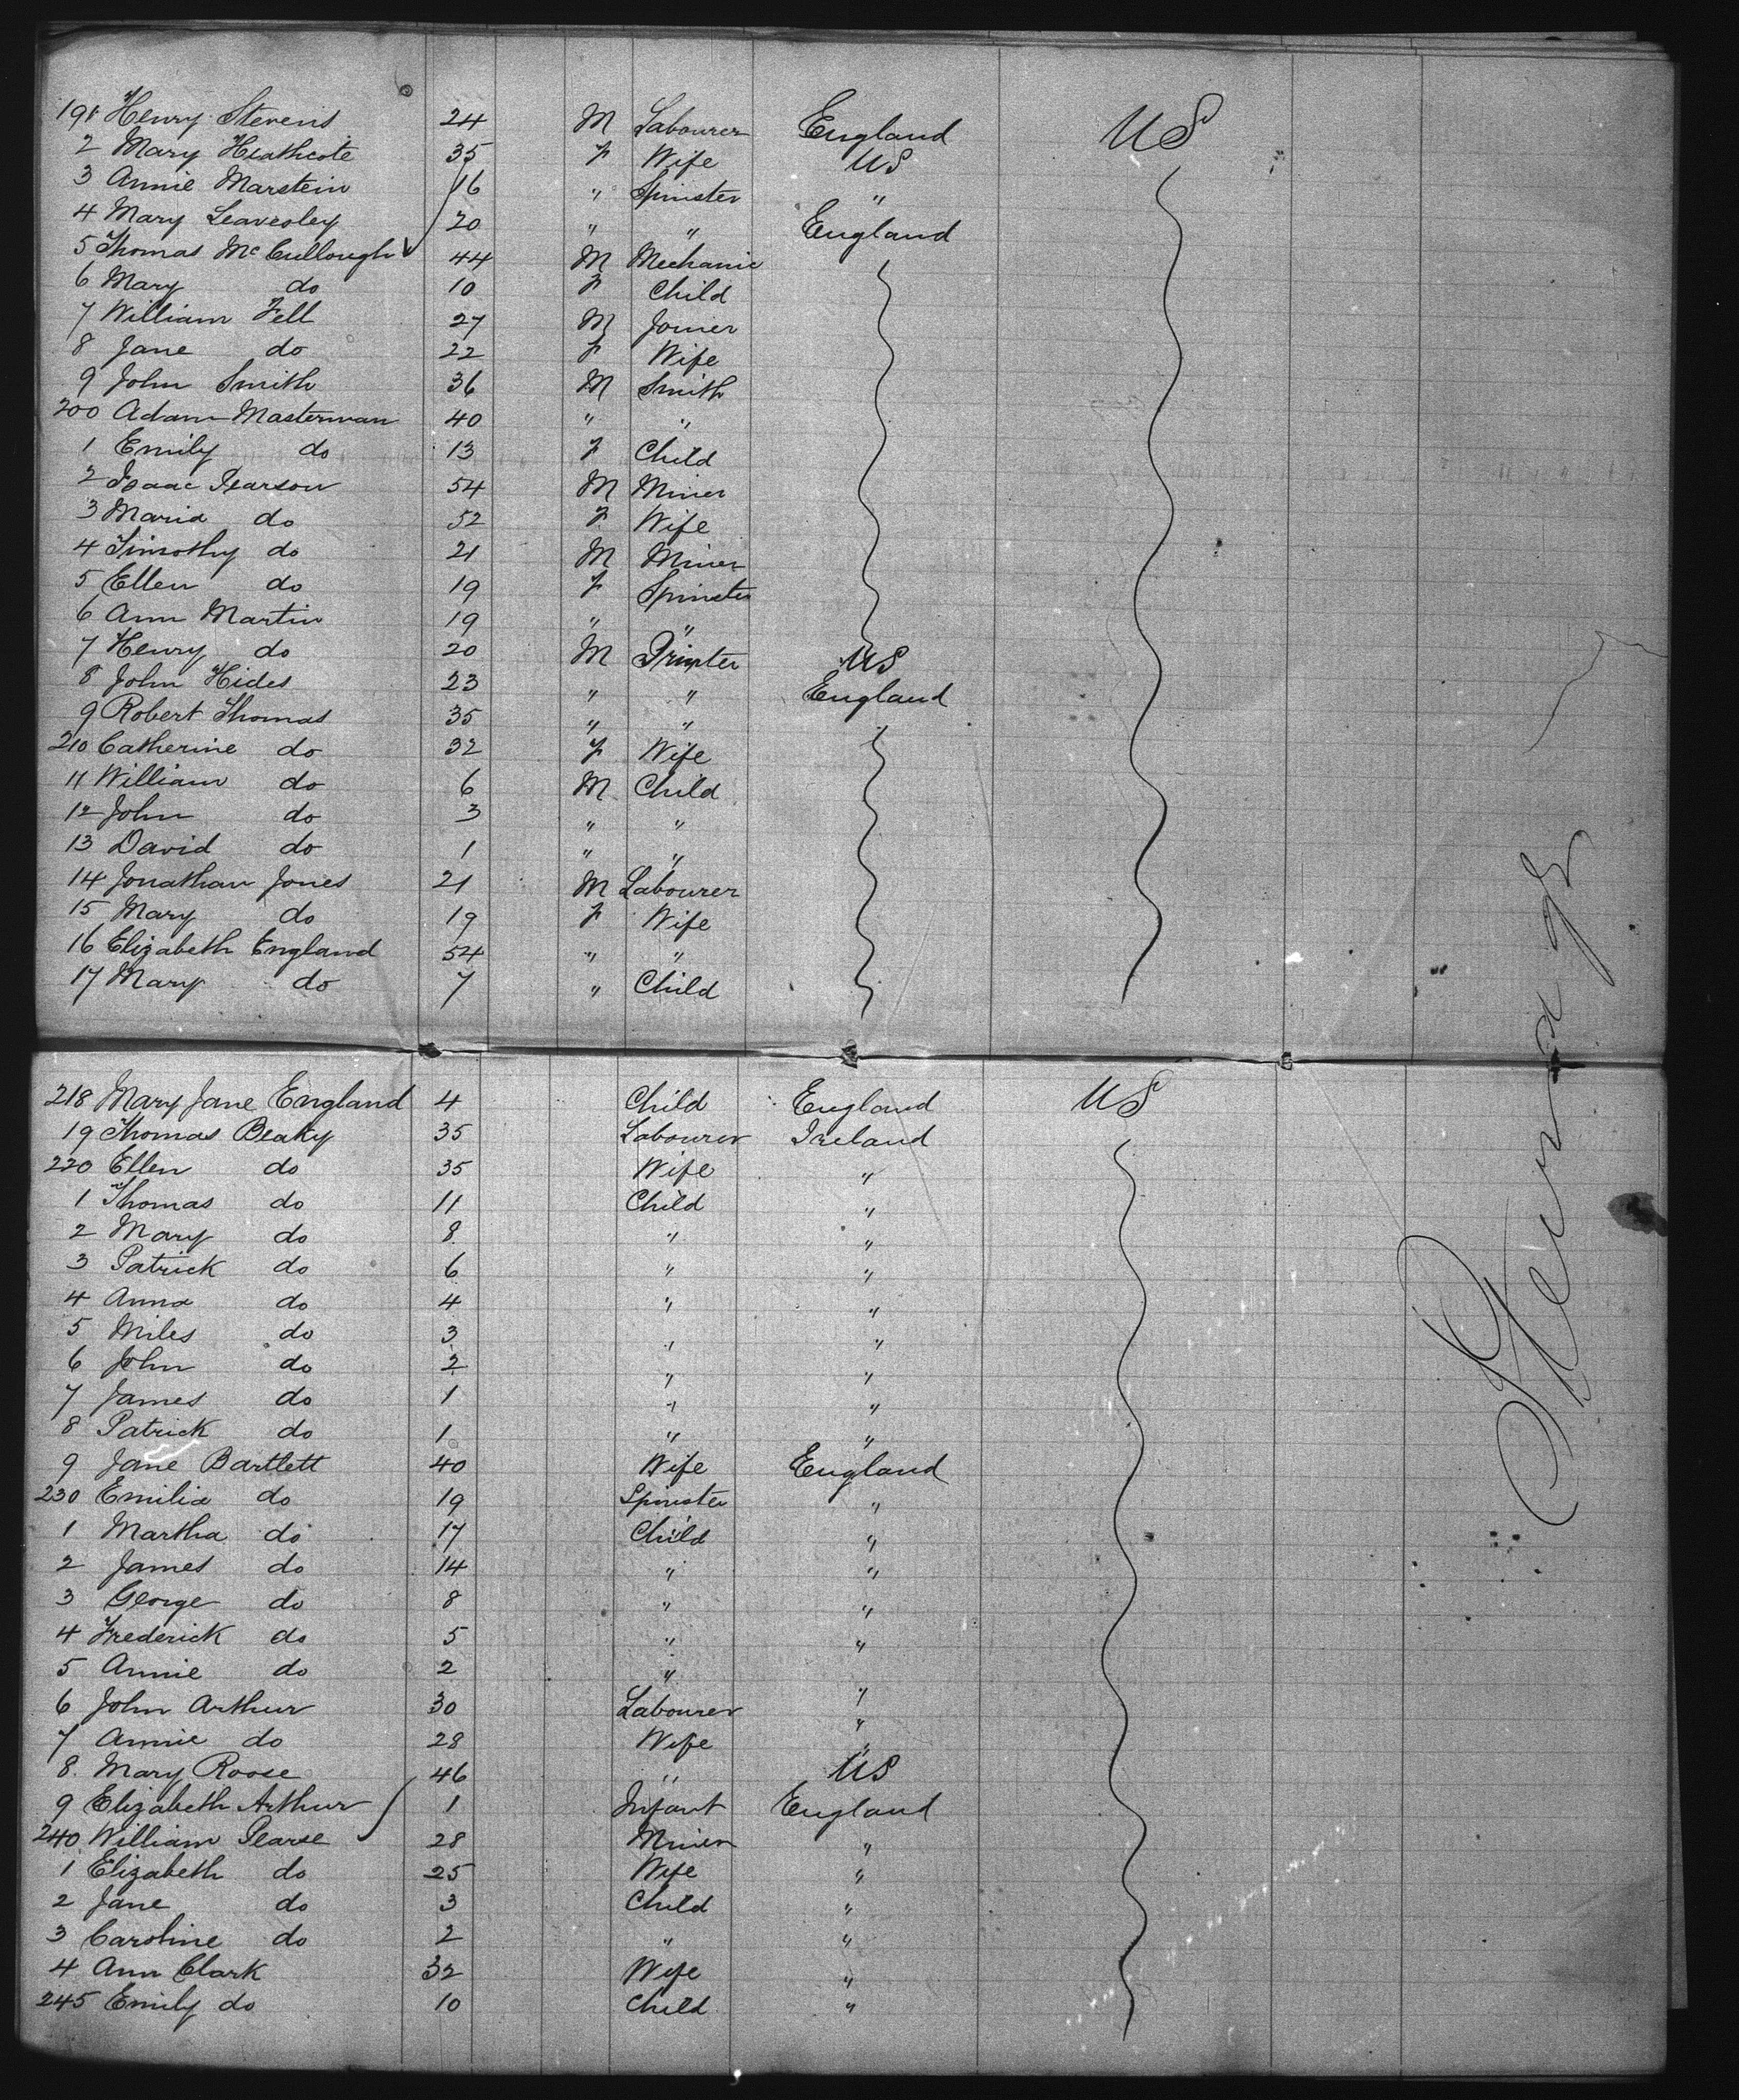 191 Henry Stevens 24 M Labourer England US
2 Mary Heathcote 35 F Wife US
3 Annie Marstein 16 " Spinster "
4 Mary Leavesley 20 " " England
5 Thomas McCullough 44 M Mechanic
6 Mary do 10 F Child
7 William Fell 27 M Joiner
8 Jane do 22 F Wife
9 John Smith 36 M Smith
200 Adam Masterman 40 " "
1 Emily do 13 F Child
2 Isaac Pearson 54 M Miner
3 Maria do 52 F Wife
4 Timothy do 21 M Miner
5 Ellen do 19 F Spinster
6 Ann Martin 19 " "
7 Henry do 20 M Printer US
8 John Hides 23 " " England
9 Robert Thomas 35 " "
210 Catherine do 32 F Wife
11 William do 6 M Child
12 John do 3 " "
13 David do 1 " "
14 Jonathan Jones 21 M Labourer
15 Mary do 19 F Wife
16 Elizabeth England 54 " "
17 Mary do 7 " Child
218 Mary Jane England 4 Child England US
19 Thomas Beaky 35 Labourer Ireland
220 Ellen do 35 Wife "
1 Thomas do 11 Child "
2 Mary do 8 " "
3 Patrick do 6 " "
4 Anna do 4 " "
5 Miles do 3 " "
6 John do 2 " "
7 James do 1 " "
8 Patrick do 1 " "
9 Jane Bartlett 40 Wife England
230 Emilia do 19 Spinster "
1 Martha do 17 Child "
2 James do 14 " "
3 George do 8 " "
4 Frederick do 5 " "
5 Annie do 2 "
6 John Arthur 30 Labourer "
7 Annie do 28 Wife "
8 Mary Roose 46 " US
9 Elizabeth Arthur 1 Infant England
240 William Pearse 28 Miner "
1 Elizabeth do 25 Wife "
2 Jane do 3 Child "
3 Caroline do 2 " "
4 Ann Clark 32 Wife "
245 Emily do 10 Child "
Steerage